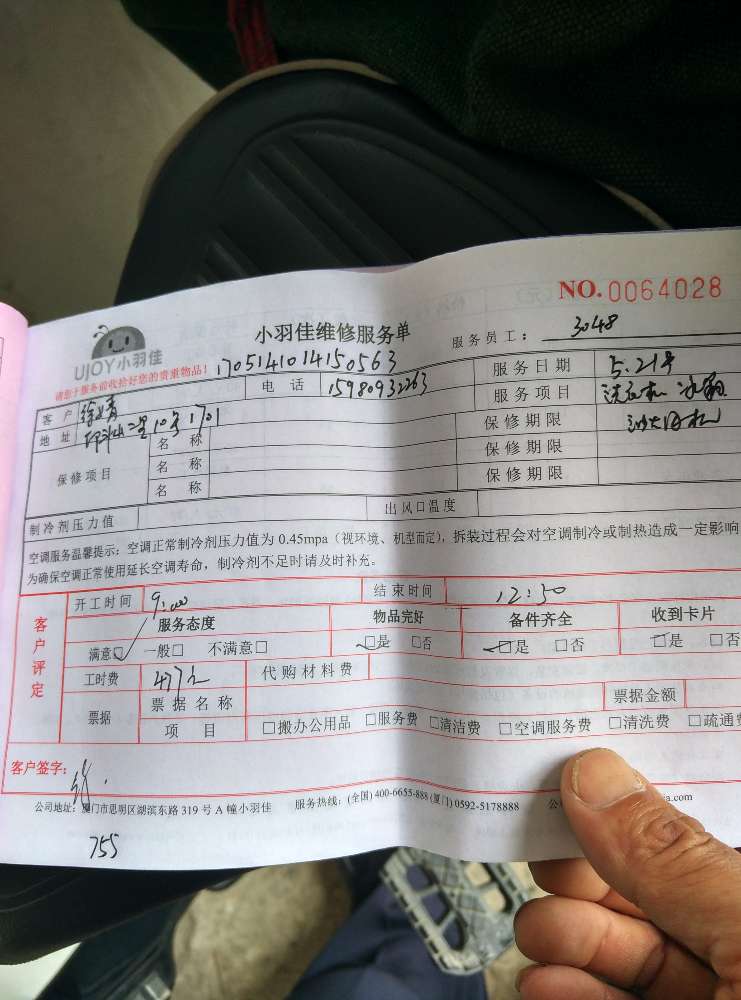 NO.0064028
UJOY小羽佳
小羽佳维修服务单
服务员工： 3048
请您于服务前收拾好您的贵重物品！
1705141014150563
客户 电话 15980932263 服务日期 5.21号
地址 10号1701 服务项目 洗衣机 冰箱
保修项目 名称 保修期限 油烟机
名称 保修期限
名称 保修期限
制冷剂压力值 出风口温度
空调服务温馨提示：空调正常制冷剂压力值为 0.45mpa（视环境、机型而定），拆装过程会对空调制冷或制热造成一定影响
为确保空调正常使用延长空调寿命，制冷剂不足时请及时补充。
客户评定
开工时间 9:00 结束时间 12:50
服务态度 物品完好 备件齐全 收到卡片
满意□ 一般□ 不满意□ □是 □否 □是 □否 □是 □否
工时费 477元 代购材料费
票据 票据名称 票据金额
项目 □搬办公用品 □服务费 □清洁费 □空调服务费 □清洗费 □疏通费
客户签字：
公司地址：厦门市思明区湖滨东路 319 号 A 幢小羽佳 服务热线：(全国) 400-6655-888 (厦门) 0592-5178888
755